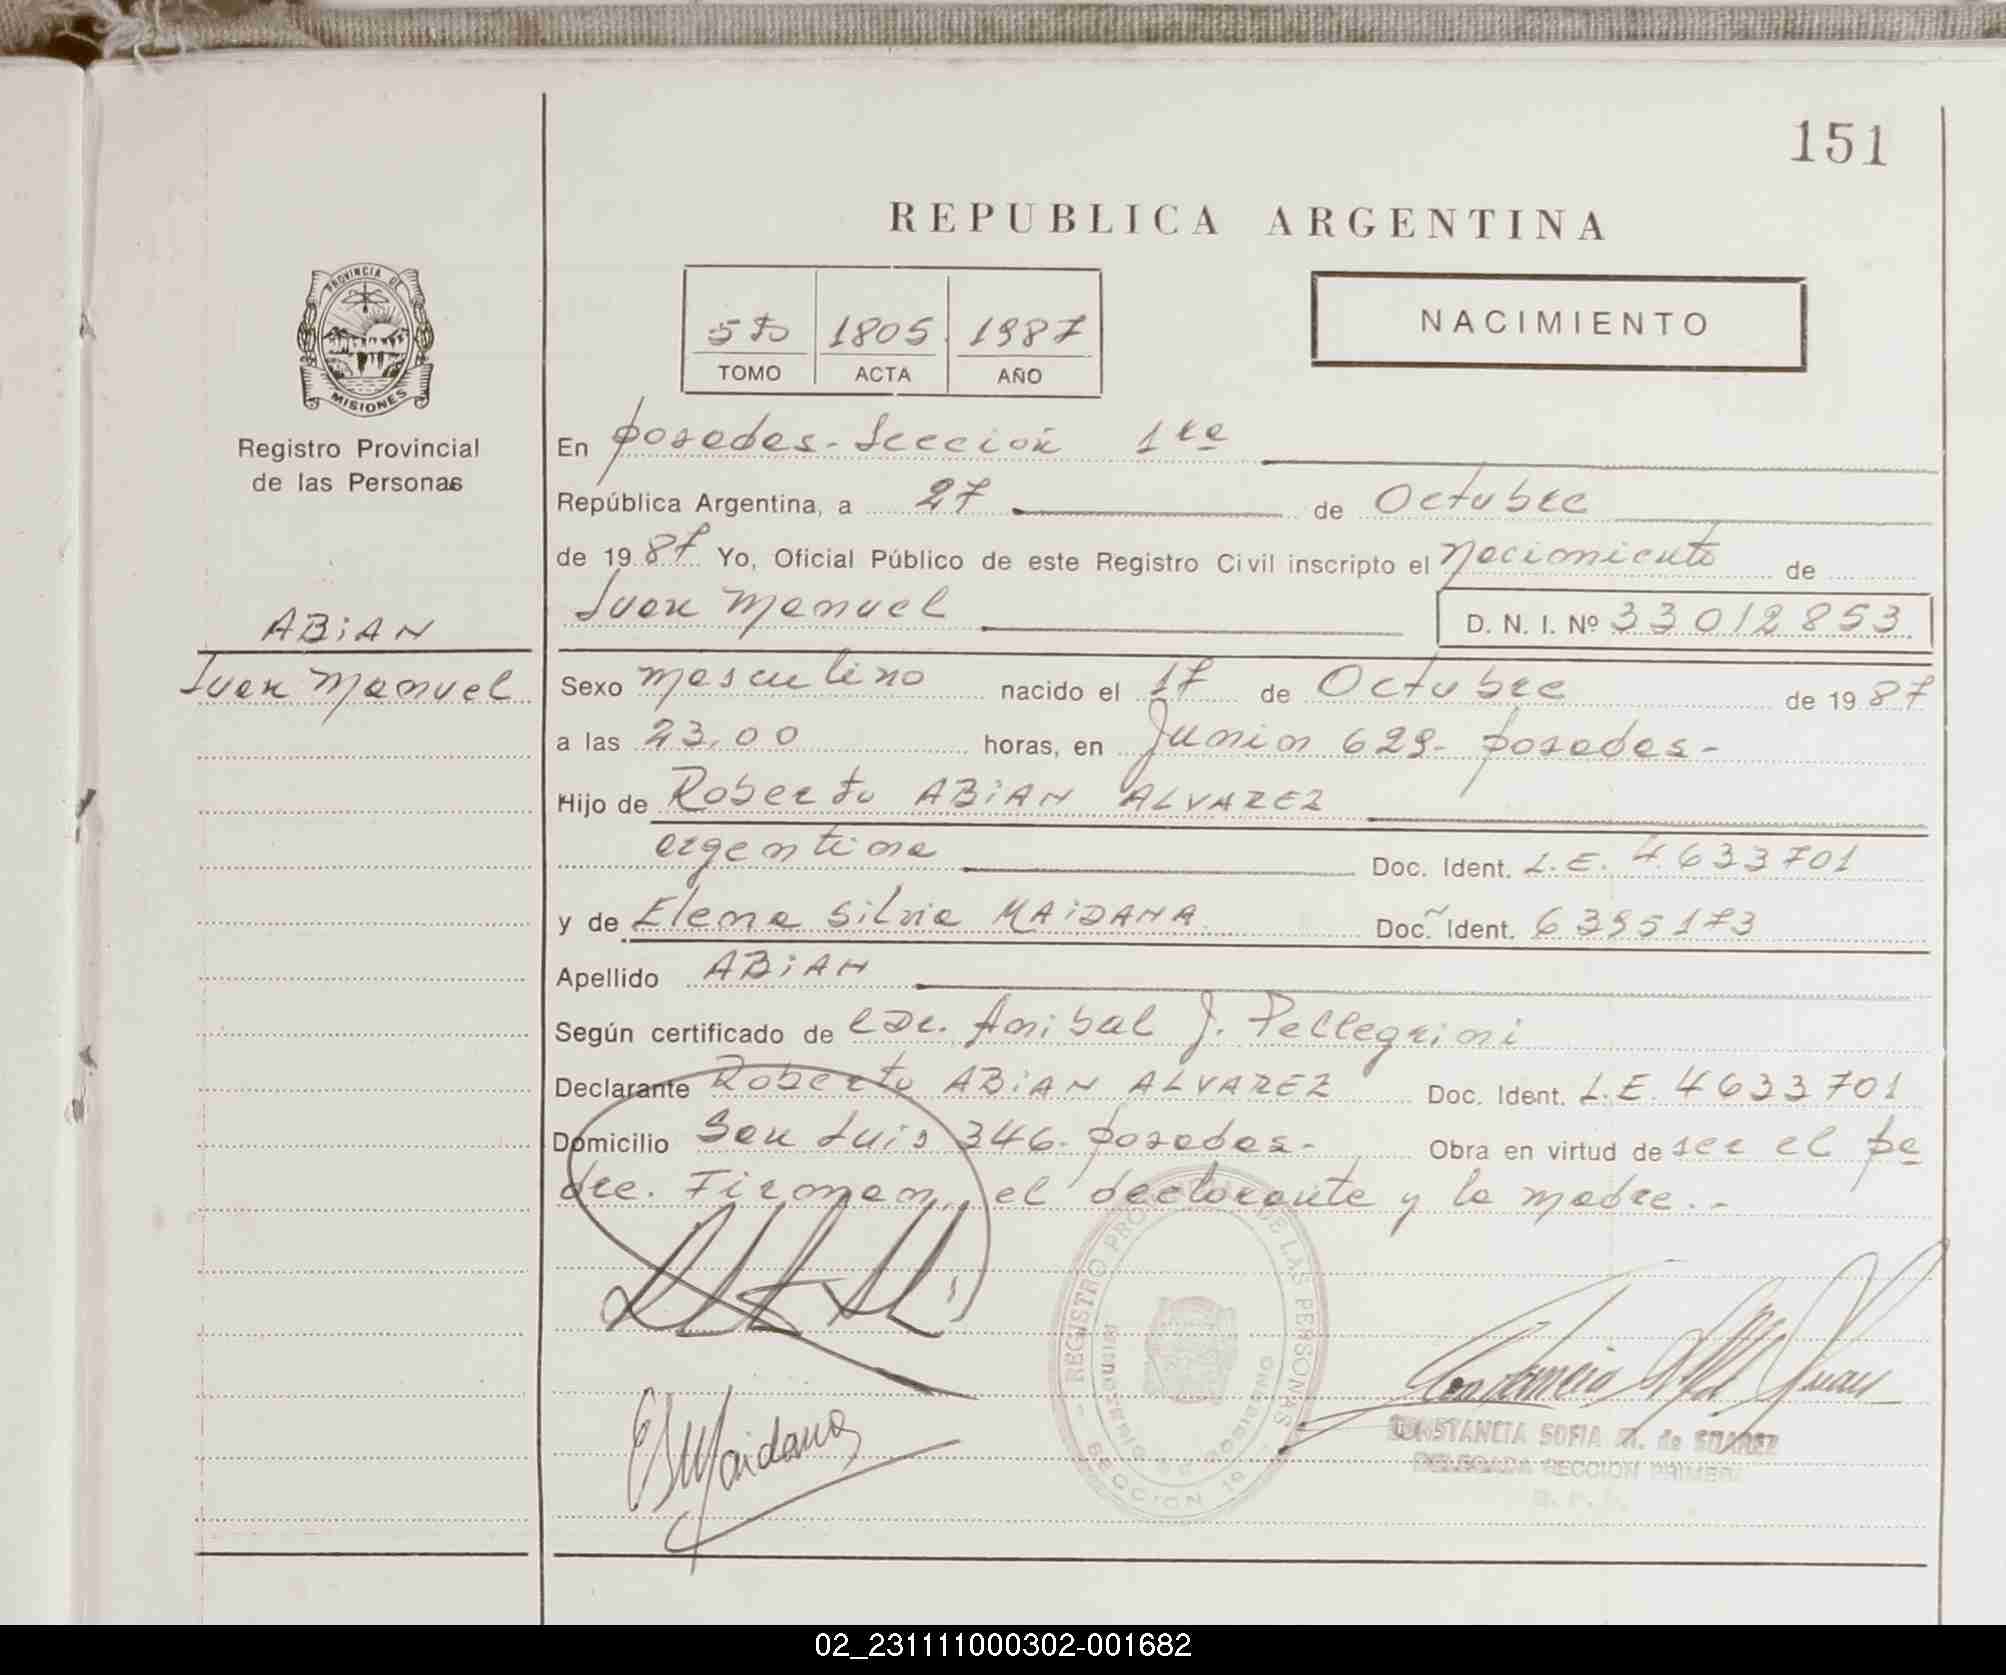 151
REPUBLICA ARGENTINA
PROVINCIA DE
MISIONES
Registro Provincial
de las Personas
5to 1805 1987
TOMO ACTA AÑO
NACIMIENTO
En Posadas - Sección 1ra
República Argentina, a 27 de Octubre
de 1987 Yo, Oficial Público de este Registro Civil inscripto el Nacimiento de
Juan Manuel D. N. I. Nº 33012853
ABiAN
Juan Manuel
Sexo masculino nacido el 17 de Octubre de 1987
a las 23,00 horas, en Junin 629 - Posadas -
Hijo de Roberto ABiAN ALVAREZ
argentina Doc. Ident. L.E. 4.633701
y de Elena Silvia MAiDANA Doc. Ident. 6395173
Apellido ABiAN
Según certificado de Dr. Anibal J. Pellegrini
Declarante Roberto ABiAN ALVAREZ Doc. Ident. L.E. 4633701
Domicilio San Luis 346 - Posadas - Obra en virtud de ser el pa
dre. Firman, el declarante y la madre. -
REGISTRO PROVINCIAL DE LAS PERSONAS
SECCION 1a
MINISTERIO DE GOBIERNO
ESMaidana
CONSTANCIA SOFIA M. de SUAREZ
DELEGADA SECCION PRIMERA
02_231111000302-001682